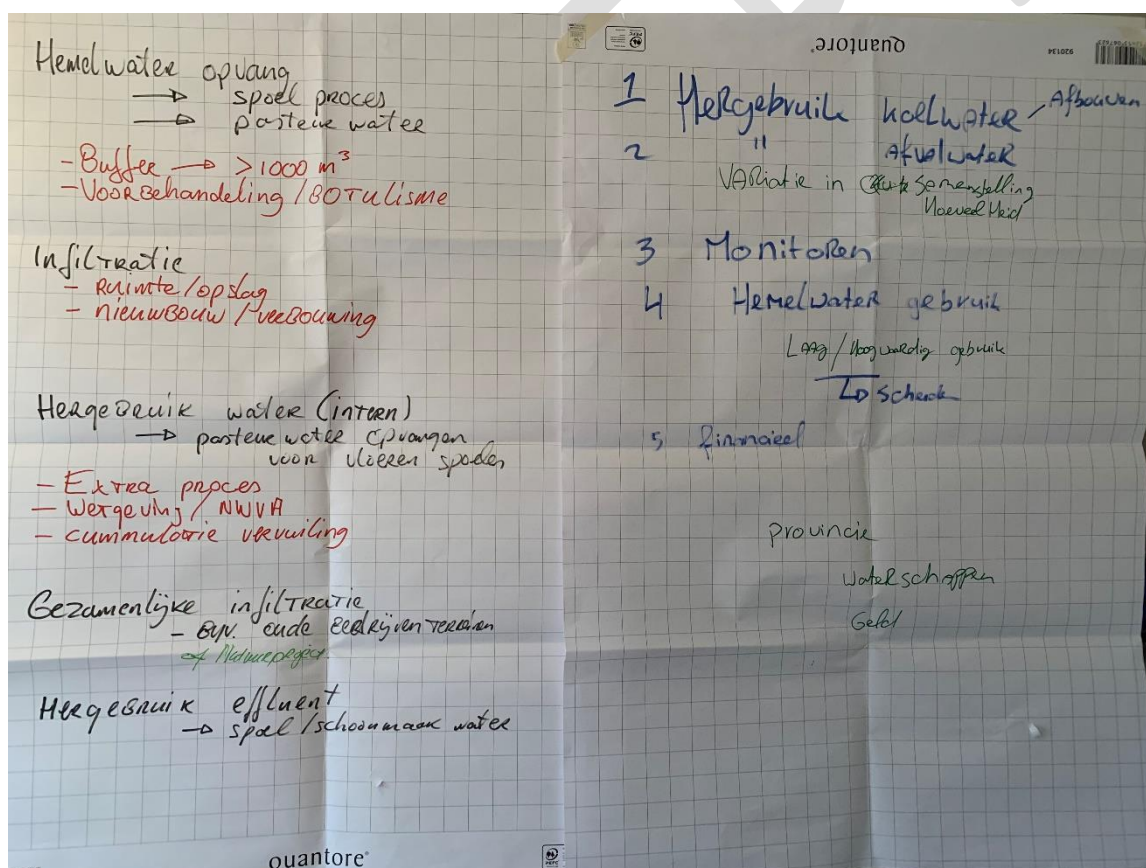 Hemelwater opvang
→ spoel proces
→ pasteur water
- Buffer → >1000 m³
- Voorbehandeling / BOTULisme
Infiltratie
- Ruimte/opslag
- nieuwbouw / verbouwing
Hergebruik water (intern)
→ pasteur water opvangen
voor vloeren spoelen
- Extra proces
- Wetgeving / NWVA
- cummulatie vervuiling
Gezamenlijke infiltratie
- Bijv. oude Bedrijven terreinen
Hergebruik effluent
→ spoel/schoonmaak water
quantore
quantore
920134
1 Hergebruik koelwater Afbouwen
2 " Afvalwater
VARiatie in Samenstelling
Hoeveelheid
3 Monitoren
4 Hemelwater gebruik
LAAg / Hoogwaardig gebruik
5 financieel
provincie
waterschappen
Geld